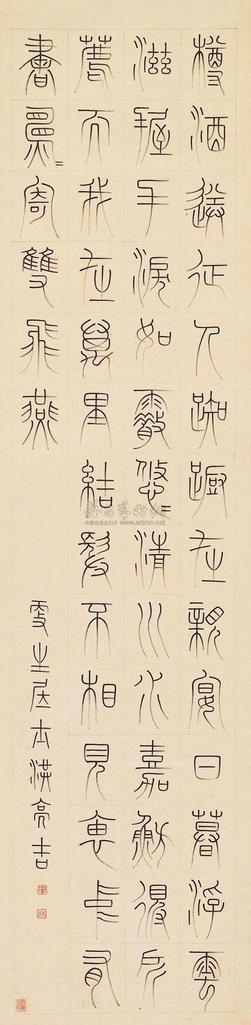 樽酒送征人踟躕在親宴日暮浮雲
滋握手淚如霰悠=清川水嘉魴得所
薦而我在萬里結髮不相見袖中有
書寄雙飛燕
更生居士洪亮吉
www.artron.net